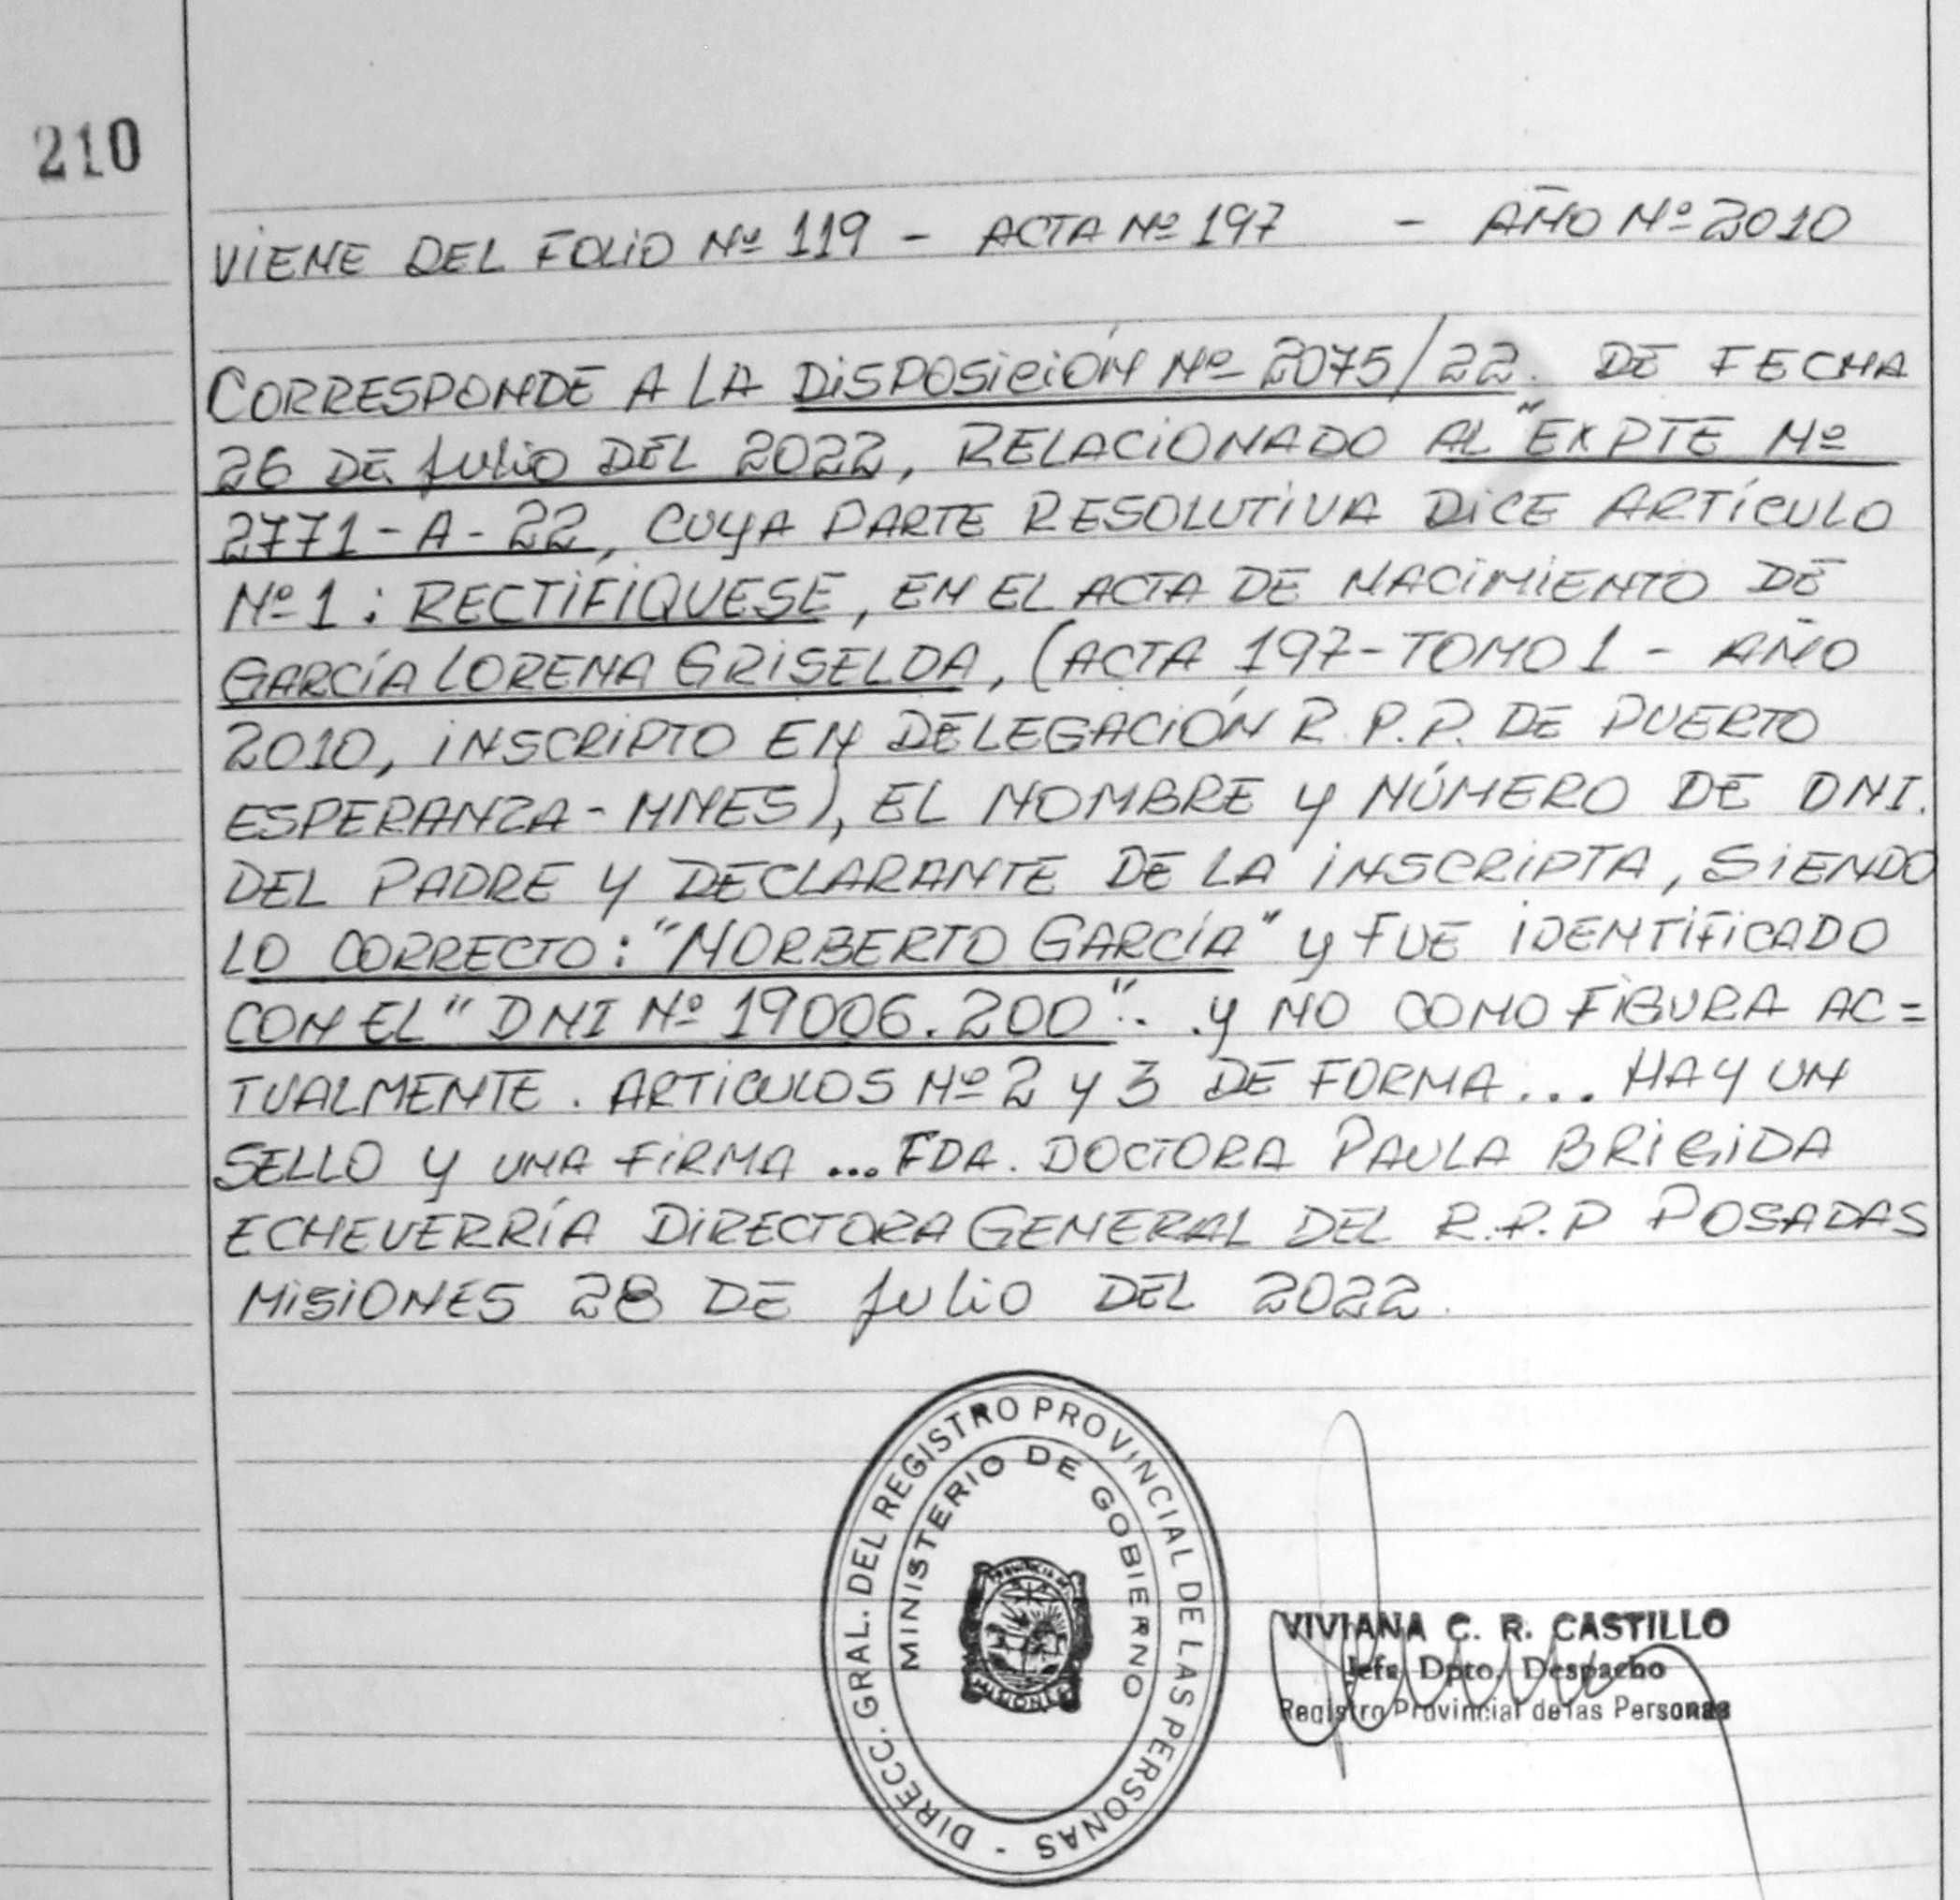 210
VIENE DEL FOLIO Nº 119 - ACTA Nº 197 - AÑO Nº 2010
CORRESPONDE A LA DISPOSICIÓN Nº 2075/22. DE FECHA
26 DE JULIO DEL 2022, RELACIONADO AL "EXPTE Nº
2771-A-22, CUYA PARTE RESOLUTIVA DICE ARTÍCULO
Nº 1: RECTIFÍQUESE, EN EL ACTA DE NACIMIENTO DE
GARCÍA LORENA GRISELDA, (ACTA 197-TOMO 1 - AÑO
2010, INSCRIPTO EN DELEGACIÓN R.P.P. DE PUERTO
ESPERANZA-MNES), EL NOMBRE Y NÚMERO DE DNI.
DEL PADRE Y DECLARANTE DE LA INSCRIPTA, SIENDO
LO CORRECTO: "NORBERTO GARCÍA" Y FUE IDENTIFICADO
CON EL "DNI Nº 19006.200". Y NO COMO FIGURA AC=
TUALMENTE. ARTICULOS Nº 2 Y 3 DE FORMA... HAY UN
SELLO Y UNA FIRMA ... FDA. DOCTORA PAULA BRIGIDA
ECHEVERRÍA DIRECTORA GENERAL DEL R.P.P POSADAS
MISIONES 28 DE JULIO DEL 2022.
DIRECC. GRAL. DEL REGISTRO PROVINCIAL DE LAS PERSONAS -
MINISTERIO DE GOBIERNO
PROVINCIA DE
MISIONES
VIVIANA C. R. CASTILLO
Jefa Dpto. Despacho
Registro Provincial de las Personas